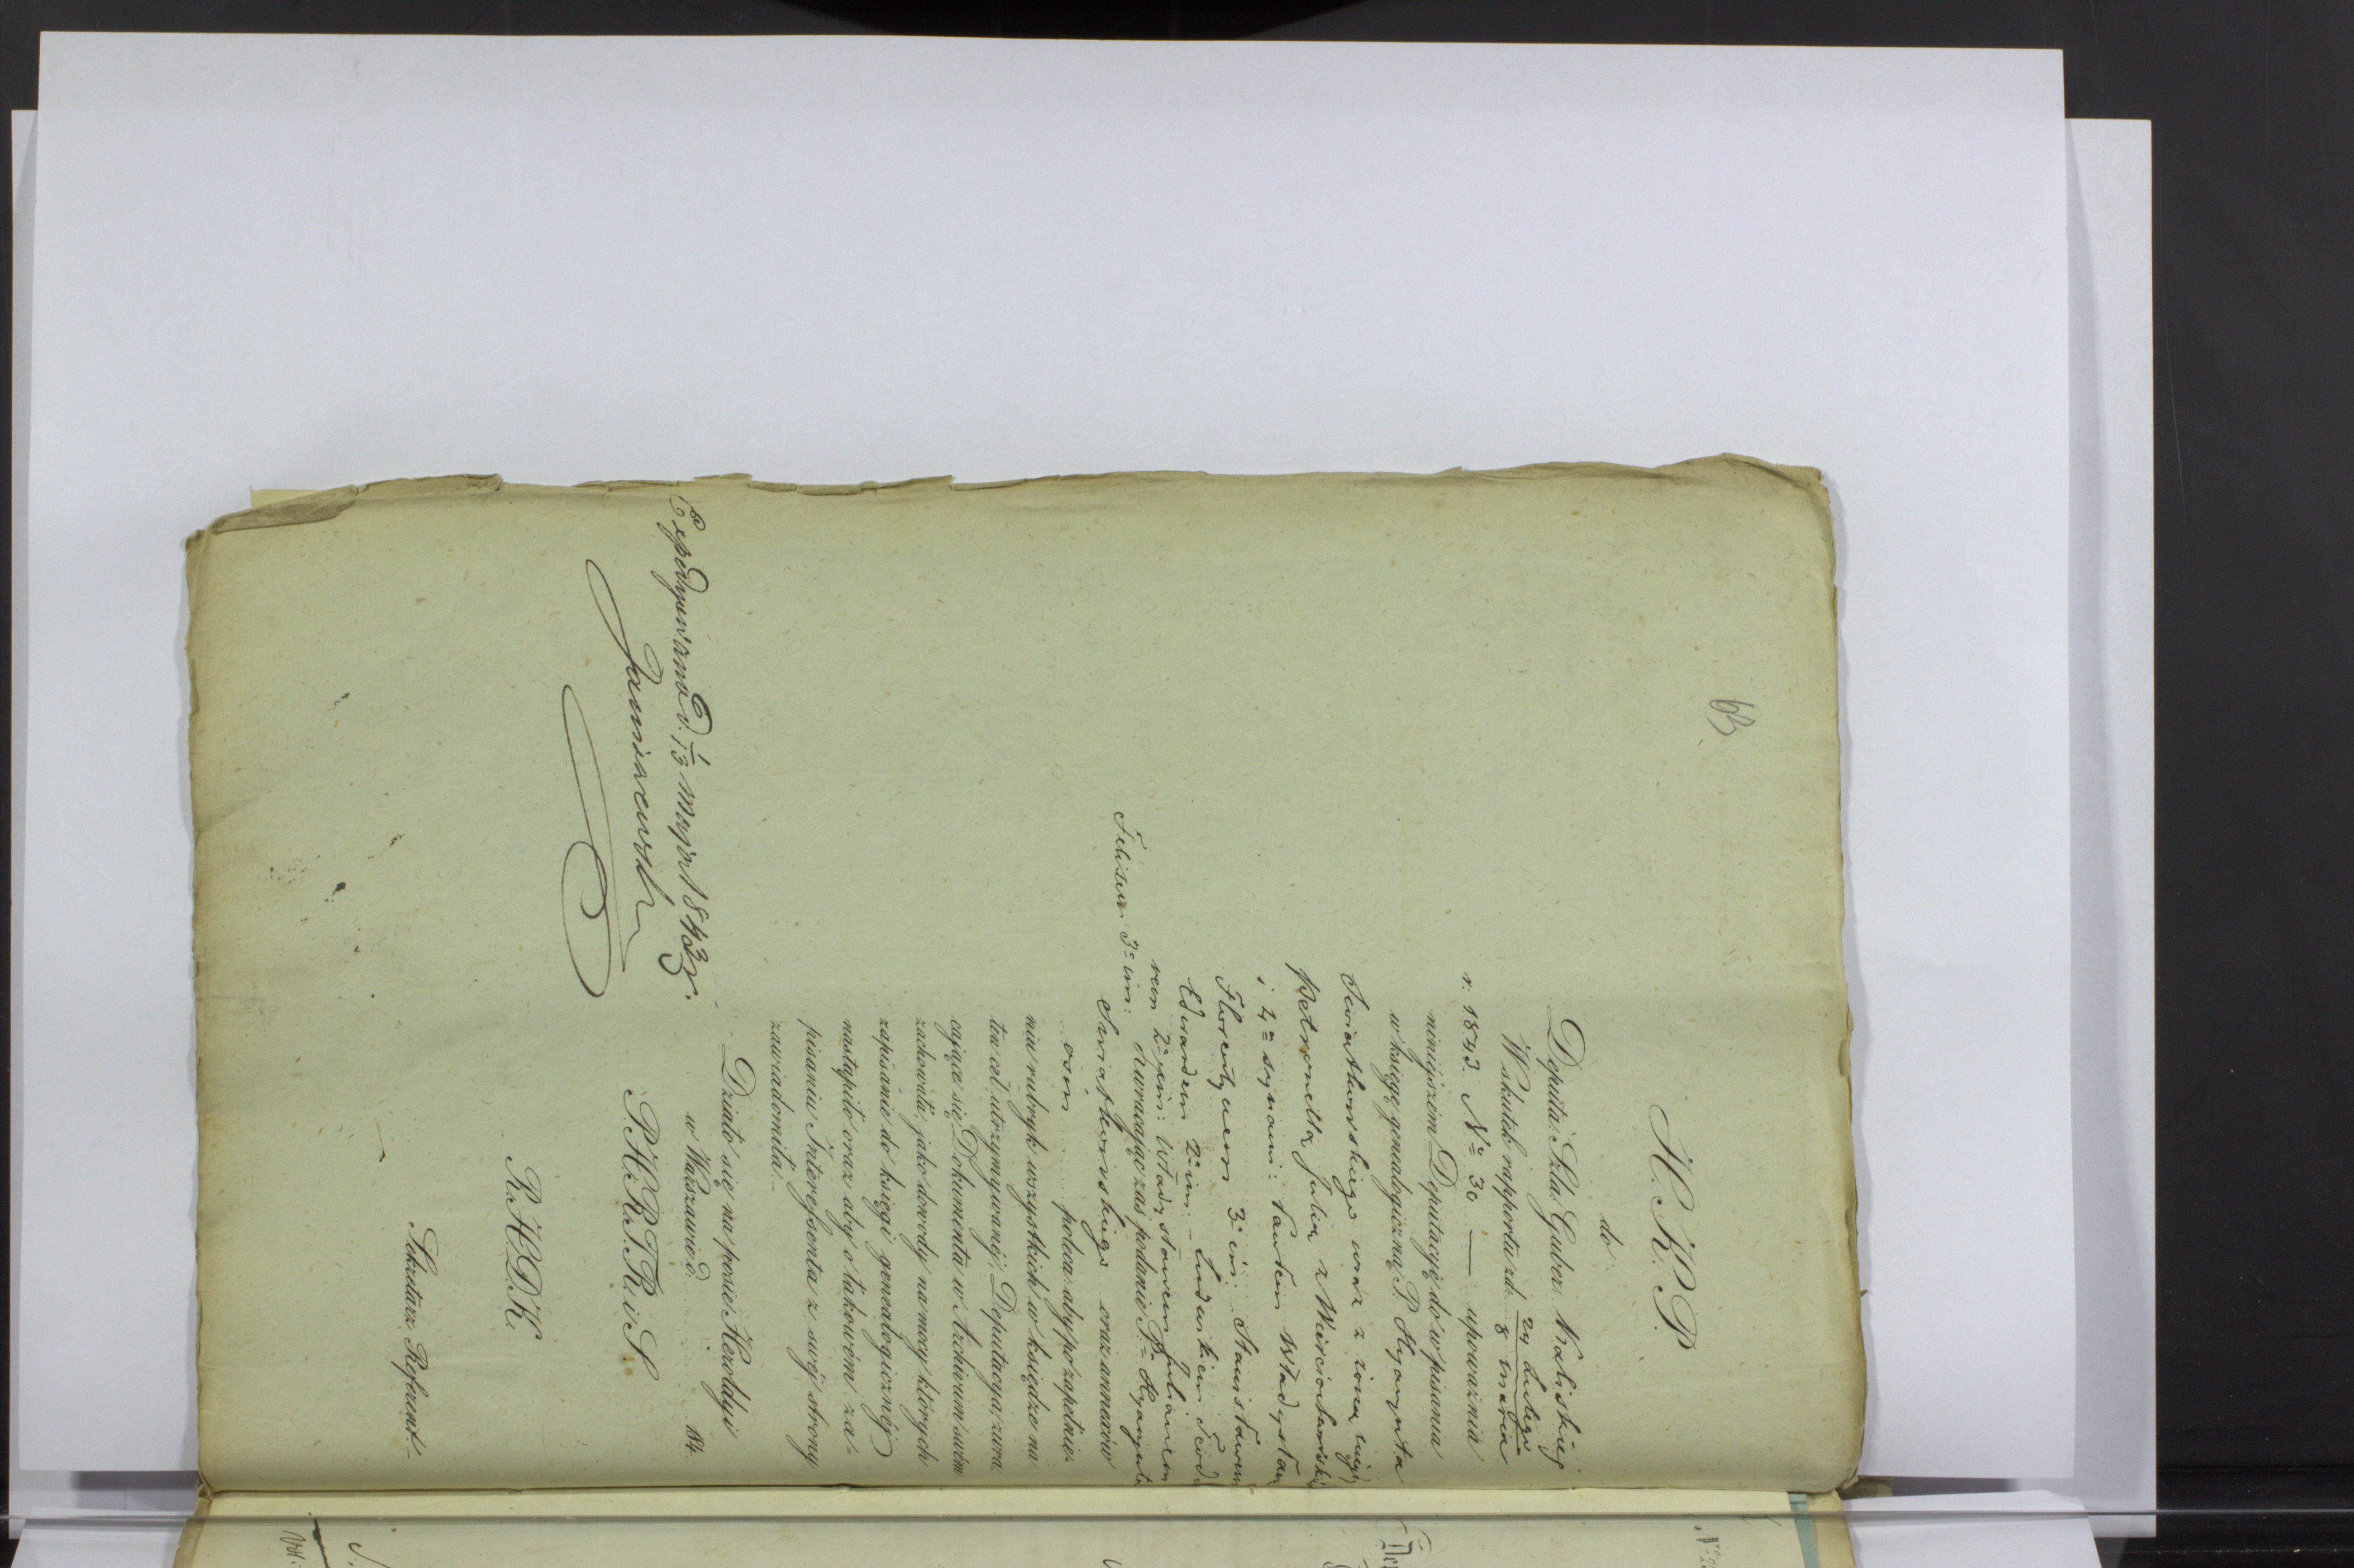 H. K. P.
do
Deputa: Szla: Guber. Kaliskiej
W skutek rapportu z d. 24 Lutego / 8 marca
r. 1843. Nº 30 — upoważnia
niniejszém Deputacyę do wpisania
w księgę genealogiczną P. Hyacynta
Kwiatkowskiego wraz z żoną
Petronellą Julią z
i 4ma synami: Władysław
Florentynem 3ga im: Stanisławem
Edwardem 2ga im: Ludwikiem
rem 2ga im: Władysławem Julianem
Felixem 3ga im: zwracając zaś podanie Pa Hyacynta
Kwiatkowskiego oraz annexów
osim poleca aby po zapełnie-
niu rubryk wszystkich w księdze na
ten cel utrzymywanéj, Deputacya zwra
cające się Dokumenta w Archiwum swém
zachowała, jako dowody na mocy których
zapisanie do księgi genealogicznéj
nastąpiło oraz aby o takowém za-
pisaniu Interessenta z swéj strony
zawiadomiła.
Działo się na posie: Heroldyi
w Warszawie d. 184
P. H. R. T. R. i S
R. H. D. K.
Sekretarz Referent
Expedyowano d. 1/13 maja 1843 r.